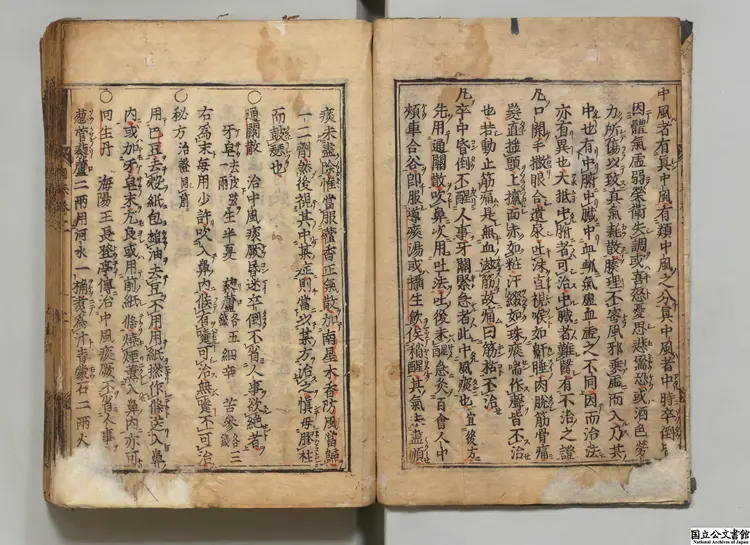 中風者有眞中風有類中風之分眞中風者中時卒倒
因體氣虛弱榮衛失調或喜怒憂思悲驚恐或酒色勞
力所傷以致眞氣耗散腠理不密風邪乘虛而入乃其
中也有中腑中臟中血脈氣虛血虛之不同因而治法
亦有異也大抵中腑者可治中臟者難醫有不治之證
凡口開手撒眼合遺尿吐沫直視喉如鼾睡肉脫筋骨痛
髮直搖頭上攛面赤如粧汗綴如珠痰喘作聲皆不治
也若動止筋痛是無血滋筋故痛曰筋枯不治
凡卒中昏倒不醒人事牙關緊急者此中風痰也宜後方
先用通關散吹鼻次用吐法吐後未醒急灸百會人中
頰車合谷即服導痰湯或攝生飲俟稍醒其氣未盡順
痰未盡除惟當服藿香正氣散加南星木香防風當歸
一二劑然後視其中其正則當以其方治之愼毋服
而
○通關散 治中風痰厥昏迷卒倒不省人事欲絶者
牙皂去皮弦 生半夏 藜蘆各五 細辛 苦參各三
右爲末每用少許吹入鼻內候有嚏可治無嚏不可治
○秘方治證同前
用巴豆去殼紙包搥油去豆不用用紙撚作條送入鼻
內或加牙皂末尤良或用前紙條燒煙熏入鼻內亦可
○回生丹 海陽王長登亭傳治中風痰厥不省人事
蔥管藜蘆二兩用河水一桶煮爲汁靑礞石二兩火
国立公文書館
National Archives of Japan